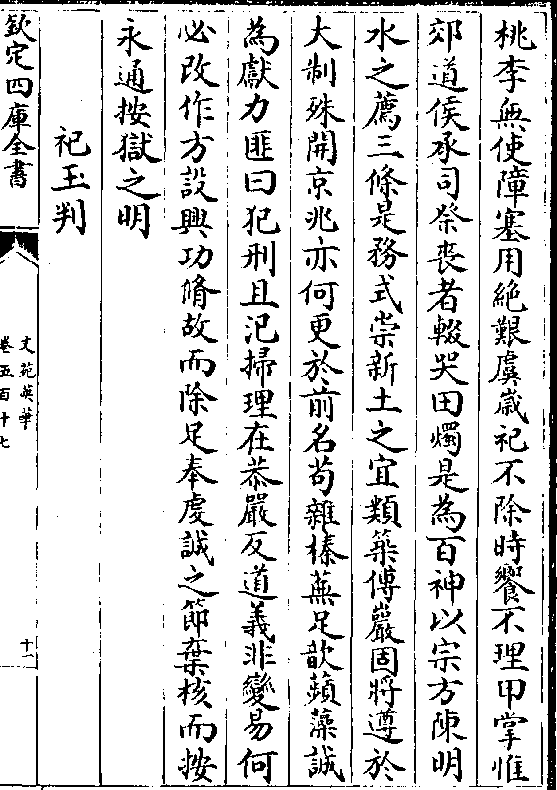 桃李無使障塞用絶艱虞歳祀不除時饗不理甲掌惟
郊道侯承司祭喪者輟哭田燭是為百神以宗方陳明
水之薦三條是務式崇新土之宜類築傅巖固將遵於
大制殊開京兆亦何更於前名苟雜榛蕪足歆蘋藻誠
為獻力匪曰犯刑且汜掃理在恭嚴反道義非變易何
必改作方設興功脩故而除足奉虔誠之節棄核而按
永通按獄之明
祀玉判
欽定四庫全書
文苑英華
卷五百十七
十一